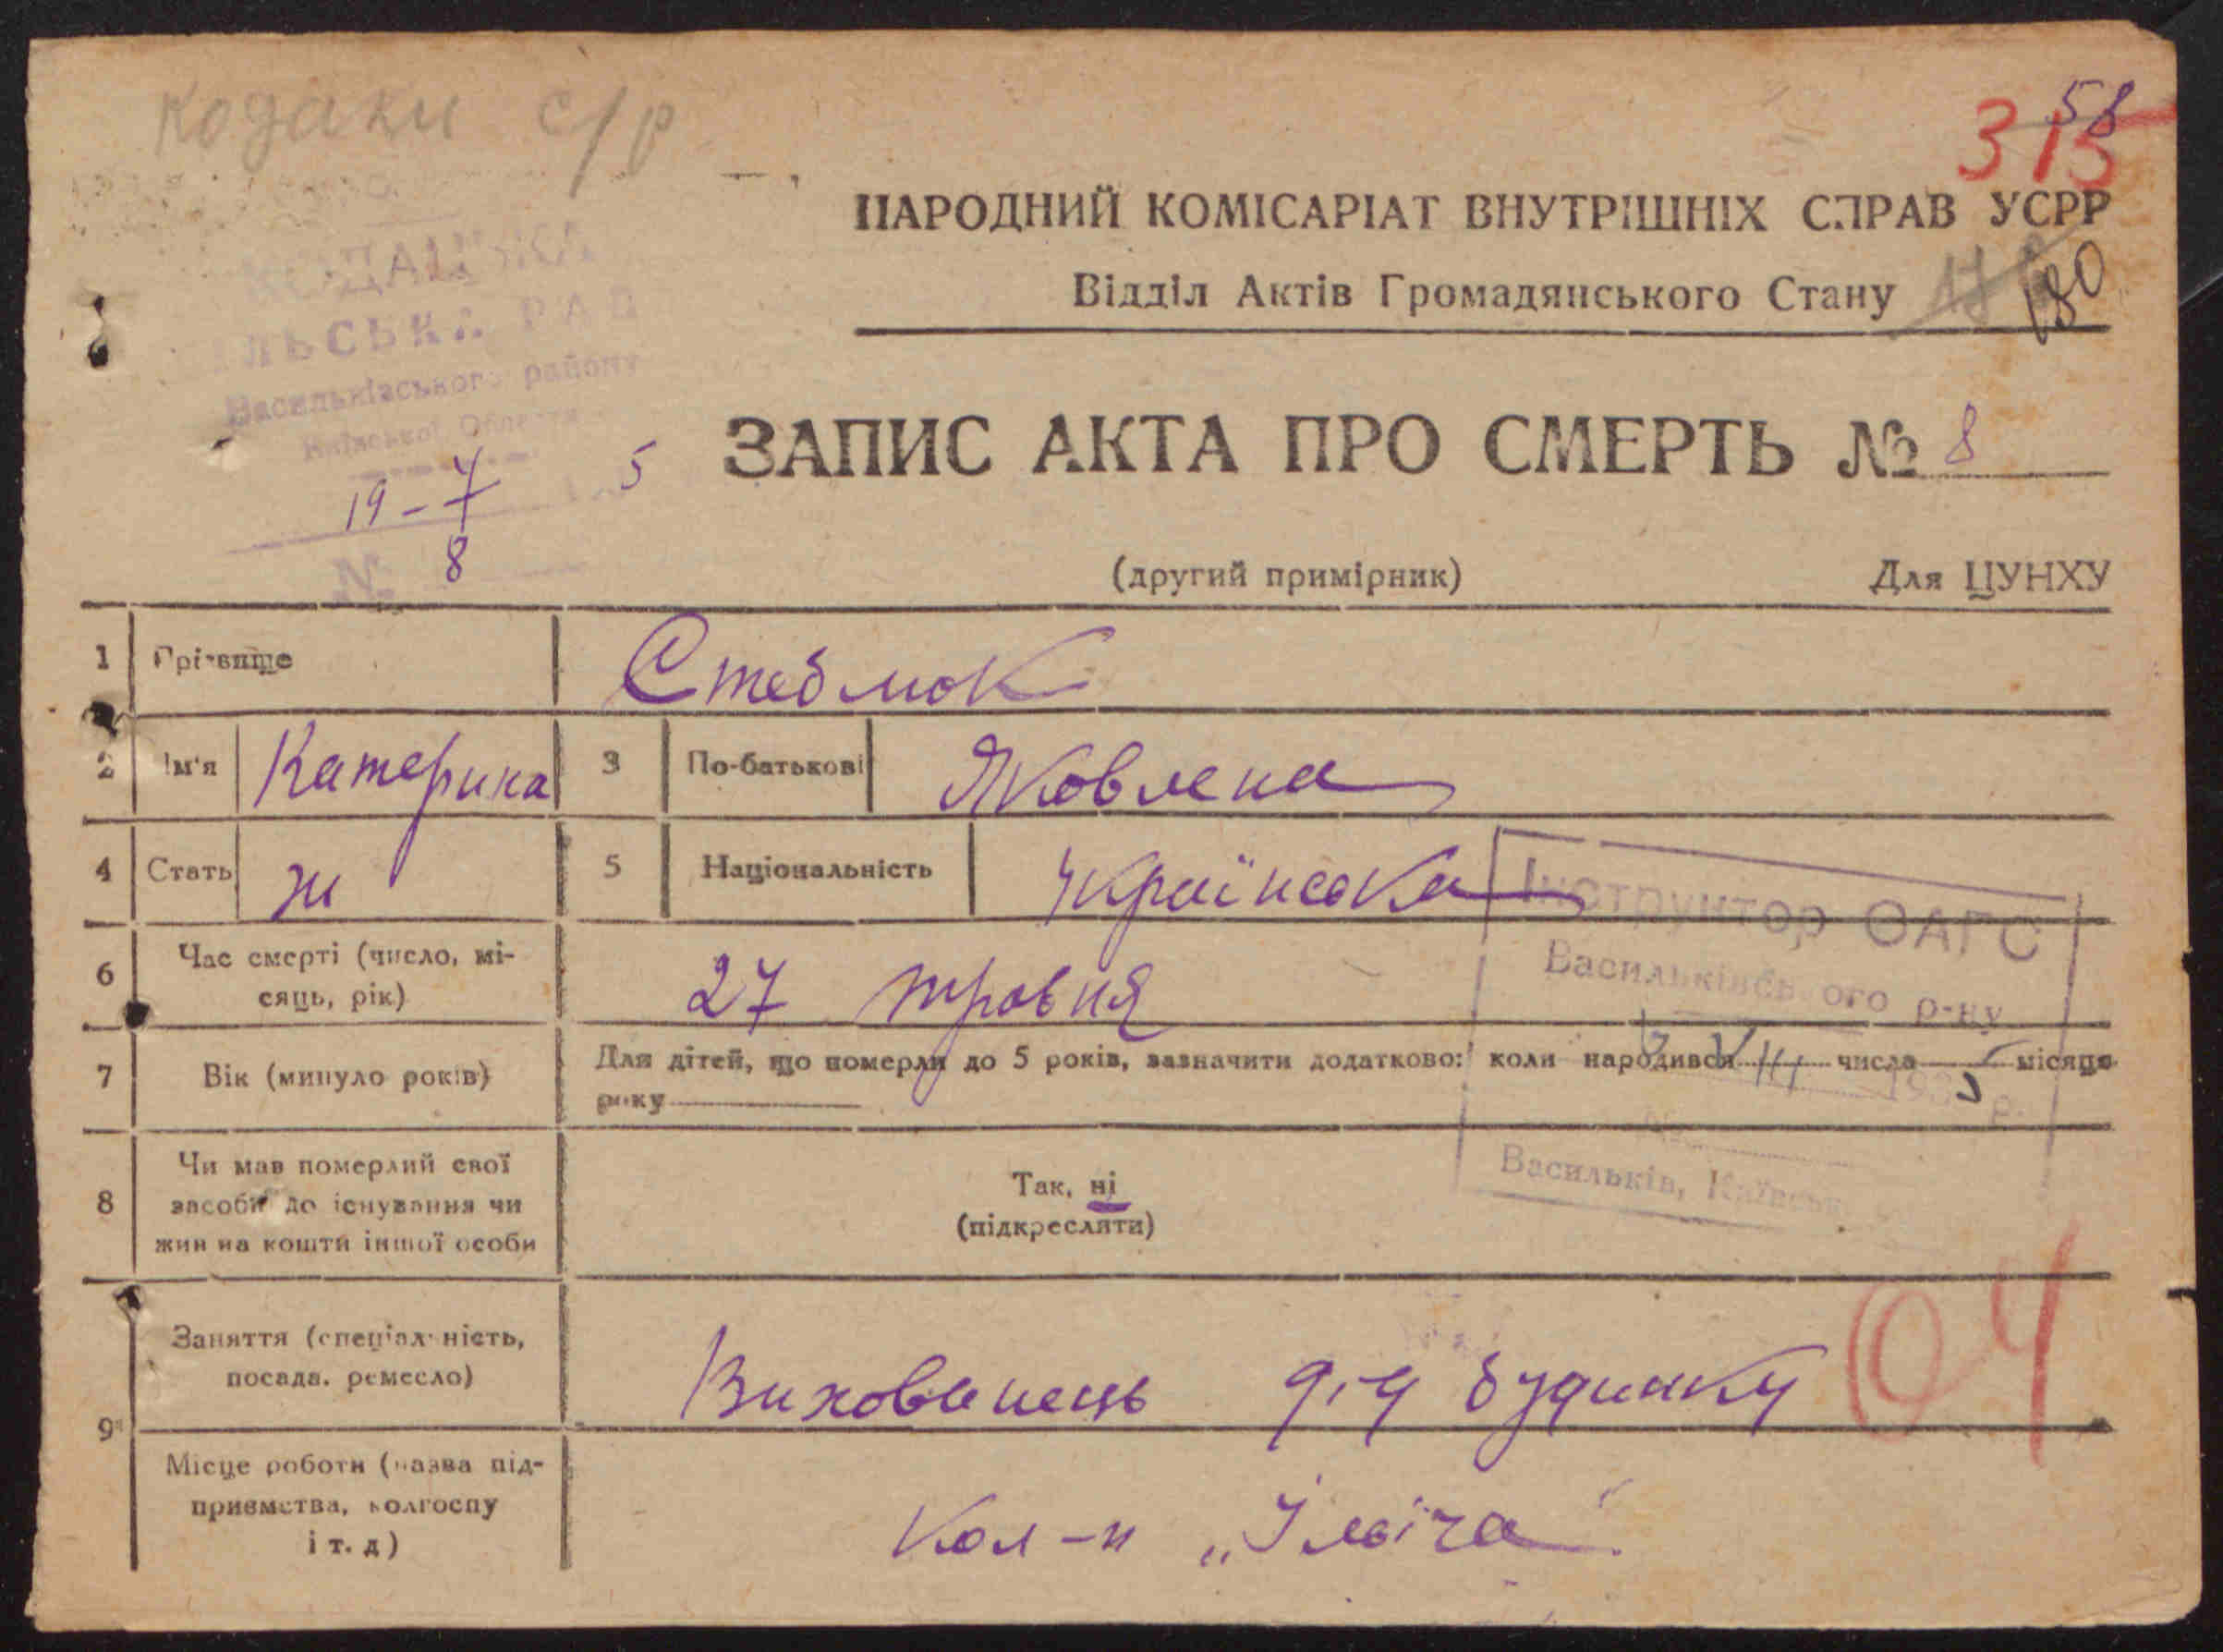 кодаки с/р
58
315
НАРОДНИЙ КОМІСАРІАТ ВНУТРІШНІХ СПРАВ УСРР
Відділ Актів Громадянського Стану
180
КОДАЦЬКА
ЛЬСЬКА РАД
Васильківського району
Київської Области
19 - 7 5
№ 8
ЗАПИС АКТА ПРО СМЕРТЬ № 8
(другий примірник) Для ЦУНХУ
1 Прізвище Стеблюк
2 Ім'я Катерина 3 По-батькові Яковлена
4 Стать ж 5 Національність Українська
Інструктор ОАГС
Васильківського р-ну
6 Час смерті (число, мі-
сяць, рік) 27 травня
7 Вік (минуло років) Для дітей, що померли до 5 років, зазначити додатково: коли народився числа місяця
року
193 5 р.
Васильків, Київськ
8 Чи мав померлий свої
засоби до існування чи
жив на кошти іншої особи
Так, ні
(підкреслити)
04
9 Заняття (спеціальність,
посада, ремесло) Вихованець дит будинку
Місце роботи (назва під-
приємства, колгоспу
і т. д) Кол-п „Ілліча"